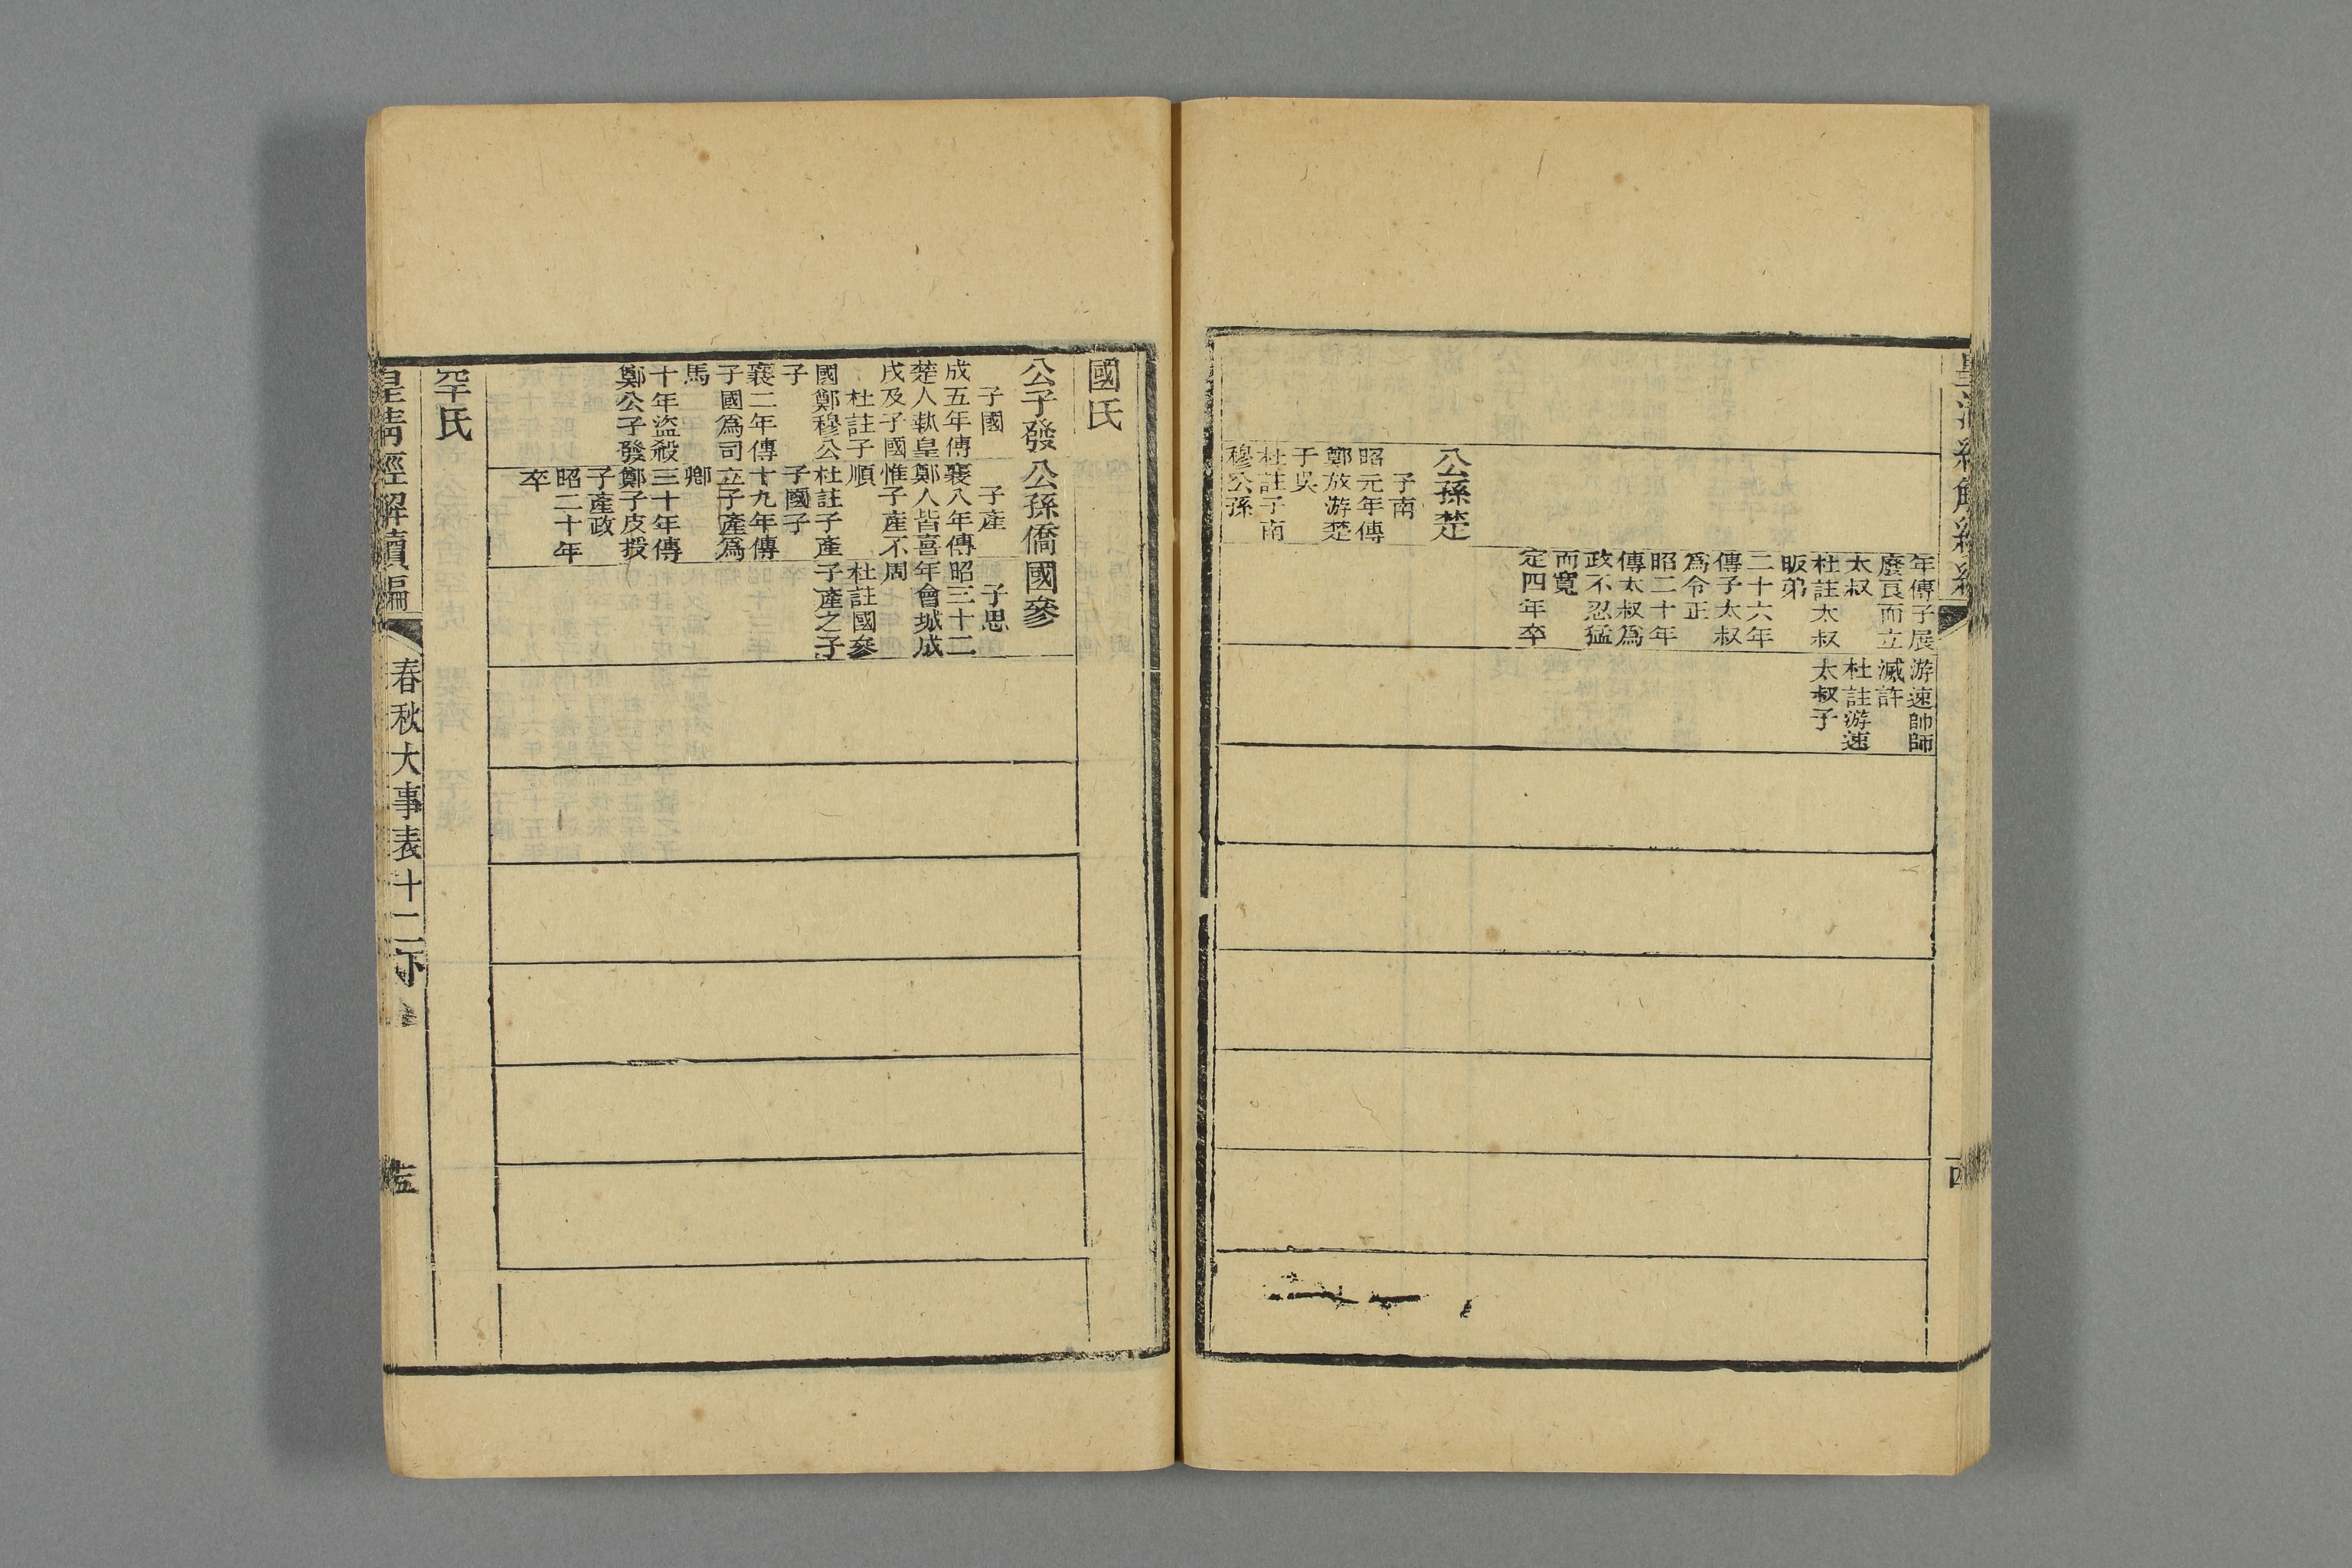 年傳子展
廢良而立
太叔
杜註太叔
昄弟
二十六年
傳子太叔
爲令正
昭二十年
傳太叔爲
政不忍猛
而寬
定四年卒
游速帥師
滅許
杜註游速
太叔子
公孫楚
子南
昭元年傳
鄭放游楚
于吳
杜註子南
穆公孫
國氏
公子發
子國
成五年傳
楚人執皇
戌及子國
杜註子
國鄭穆公
子
襄二年傳
子國爲司
馬
十年盜殺
鄭公子發
公孫僑
子產
襄八年傳
鄭人皆喜
惟子產不
順
杜註子產
子國子
十九年傳
立子產爲
卿
三十年傳
鄭子皮授
子產政
昭二十年
卒
國參
子思
昭三十二
年會城成
周
杜註國參
子產之子
罕氏
皇清經解續編
春秋大事表十二下